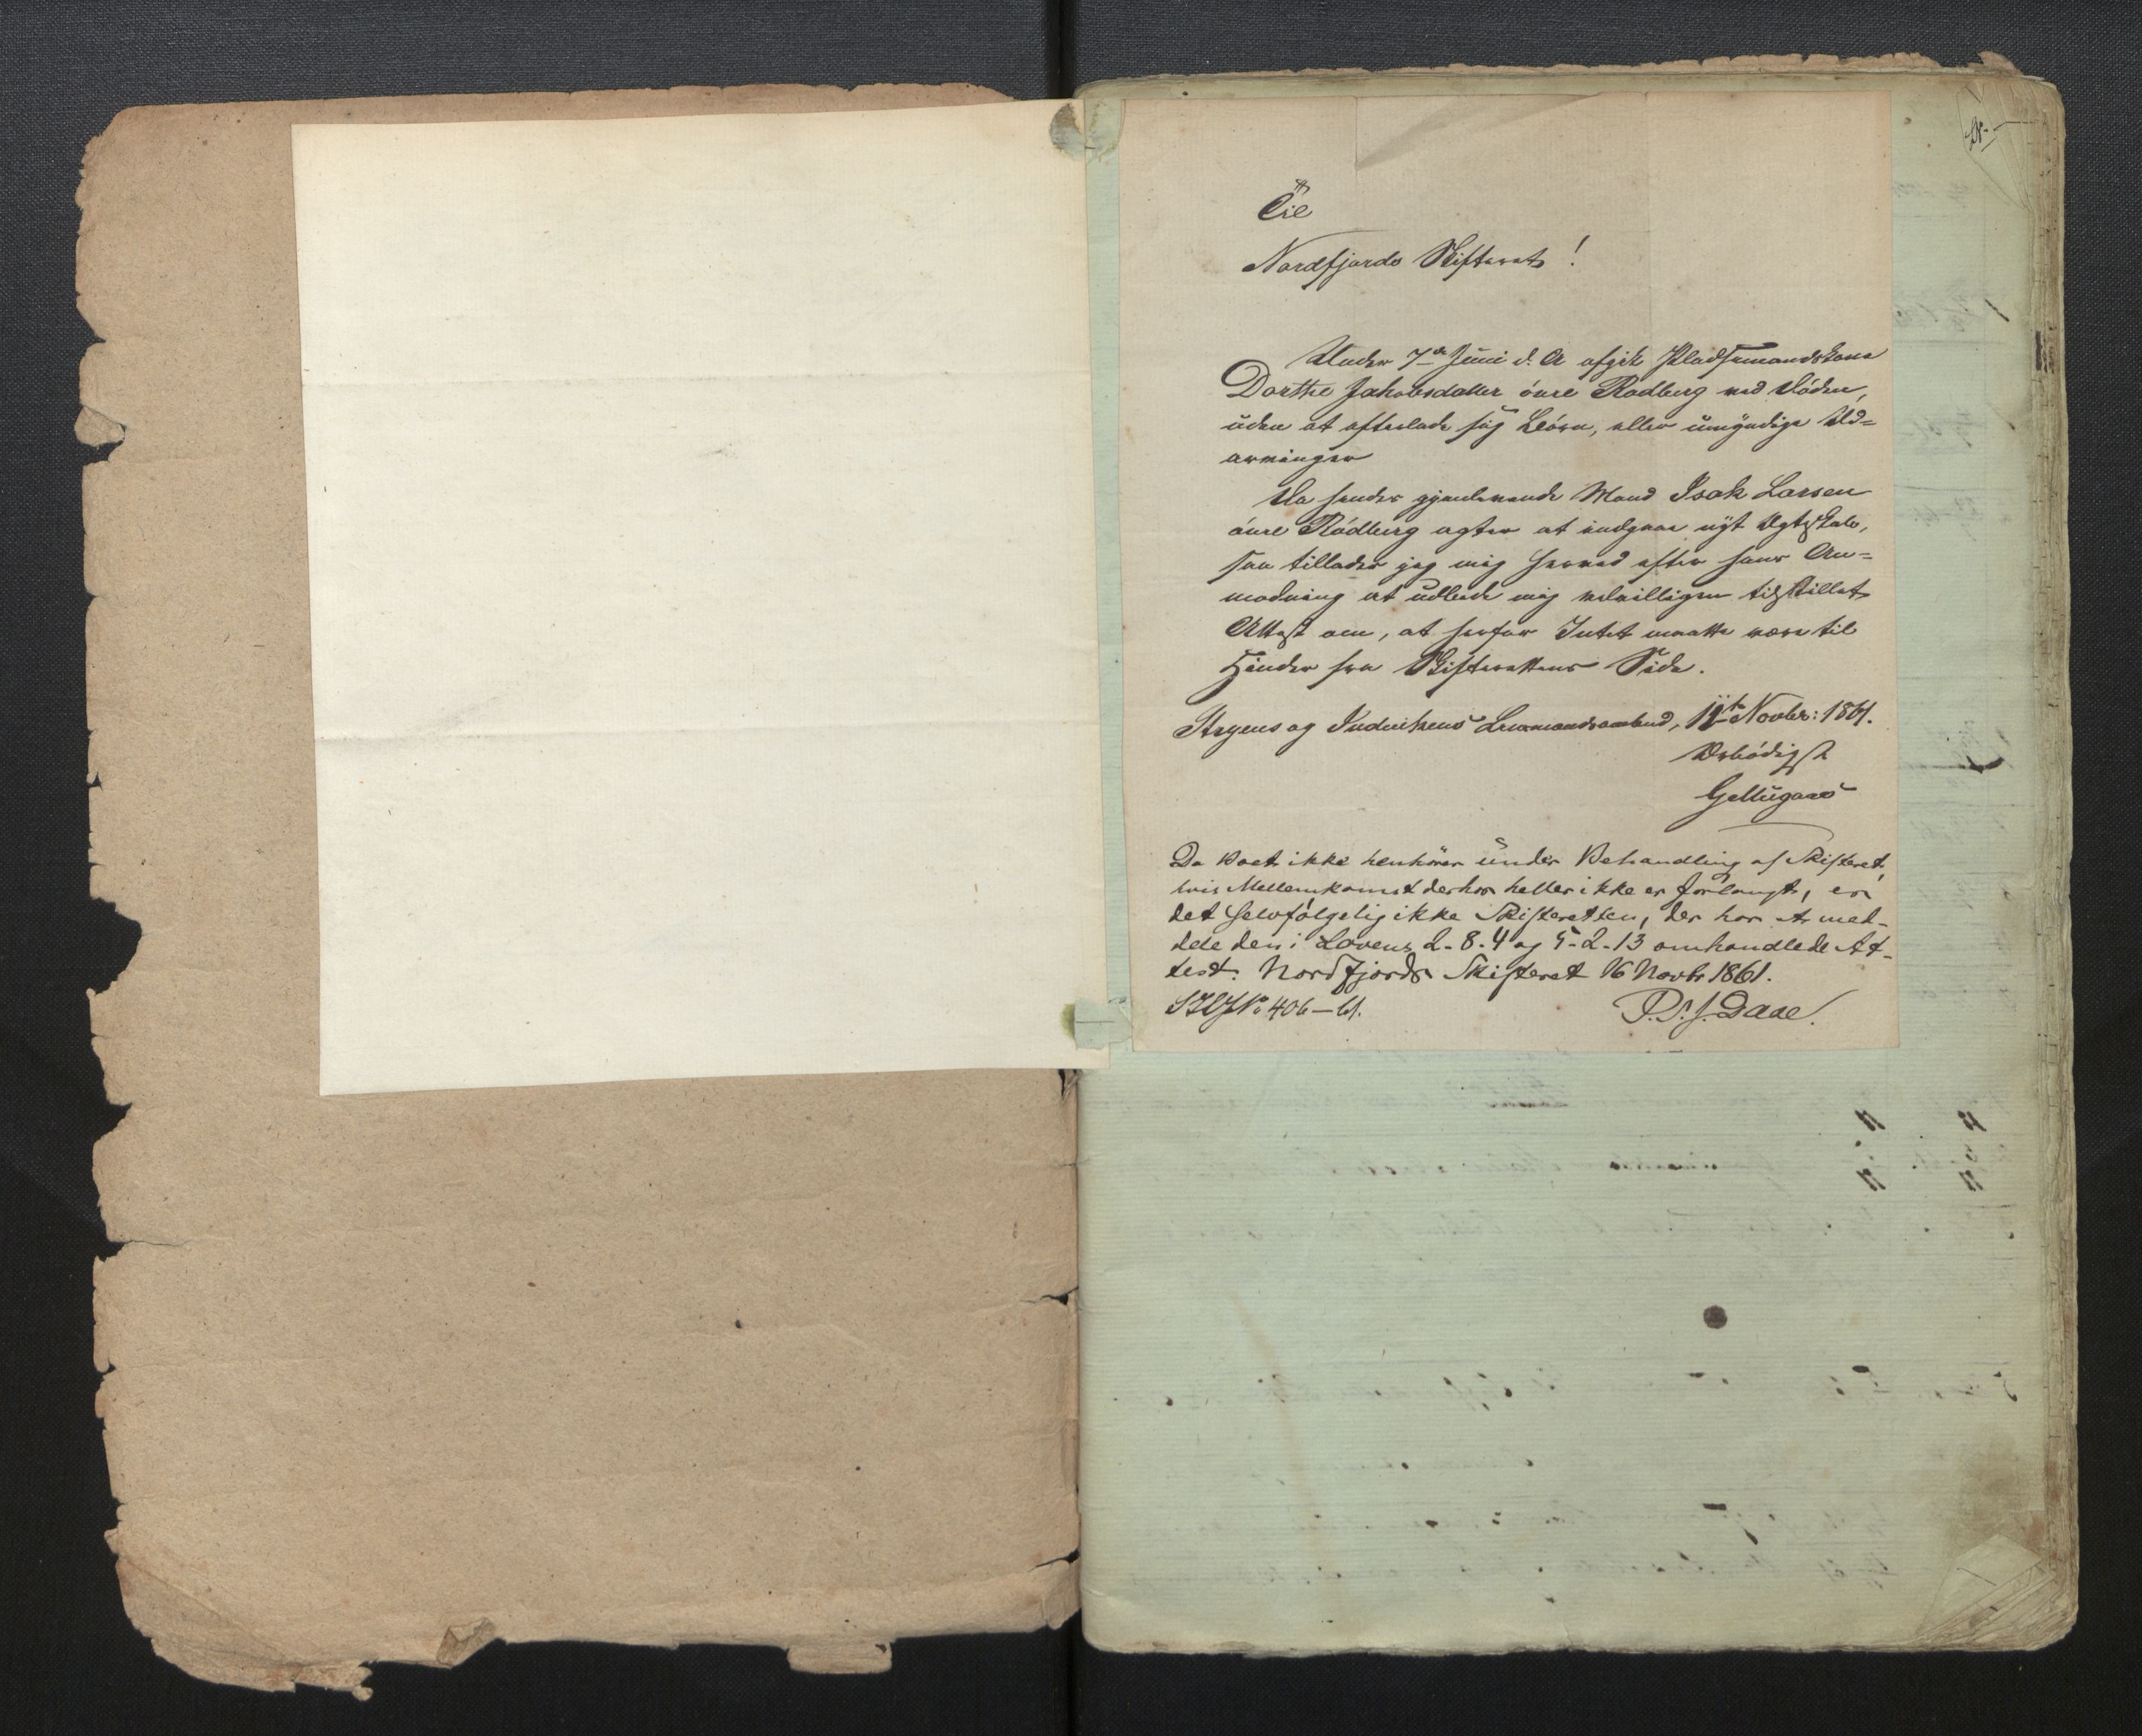 Til
Nordfjords Skifteret!
Under 7de Juni d. A afgik Pladsemandskone
Dorthe Jakobsdatter övre Rødberg ved Döden,
uden at efterlade sig Börn, eller umyndige Ud-
arvinger
Da hendes gjenlevende Mand Isak Larsen
övre Rödberg agter at indgaae nyt Ægteskab,
saa tillader jeg mig herved efter hans An-
modning at udbede mig velvilligen tilstillet
Attest om, at herfor Intet maatte være til
Hinder fra Skifterettens Side.
Stryens og Indvikens Lensmandsombud, 11te Novber: 1861.
Ærbödigst
Da Boet ikke henhörer under Behandling af Skifteret,
hvis Mellemkomst derhos heller ikke er forlangt, er
det selvfölgelig ikke Skifteretten, der har at med-
dele den i Lovens 2-8-4 og 5-2-13 omhandlede At-
test. Nordfjords Skifteret 16 Novbr 1861.
No 406-61.
P. S. J. Daae.